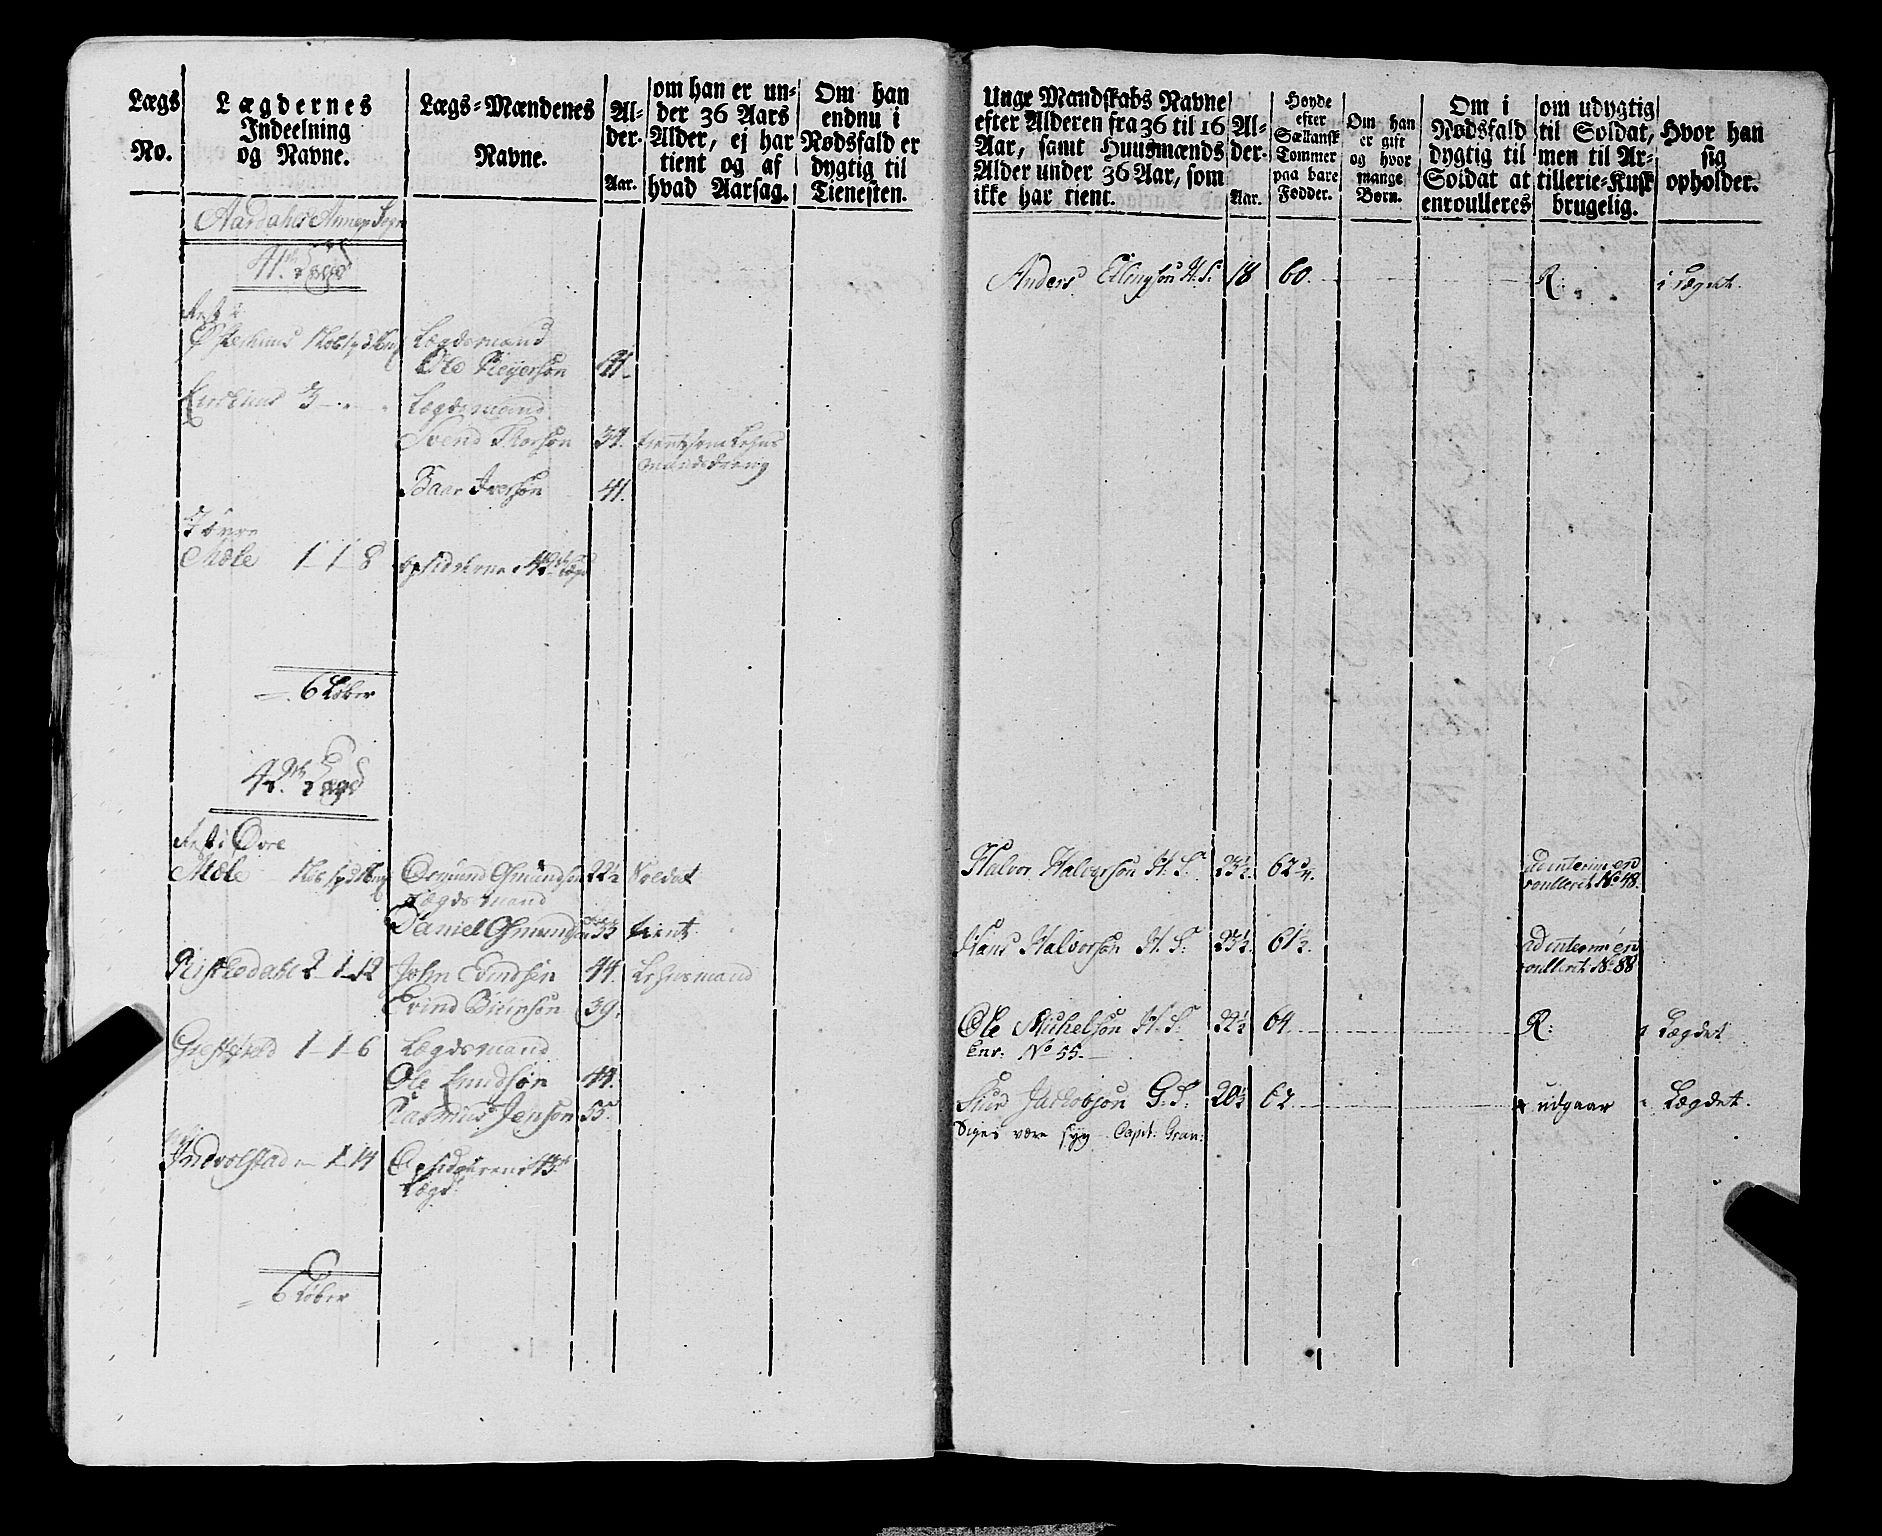 Lægs No.
Lægdernes Indeelning og Navne.
Lægs-Mændenes Navne.
Al-der. Aar.
om han er un-
der 36 Aars
Alder, ej har
tient og af
hvad Aarsag.
Om han
endnu i
Nødsfald er
dygtig til
Tienesten.
Aardahls Annex Sogn
41. Lægd
Lægdsmand
Ole Reyerson 41.
3
Lægdsmand
Svend Thorson 34.
Baar Iverson 41.
Mæle 1-1-8
6 Løber
42. Lægd
Øvre
Mæle Osmund Osmundson 22½ Soldat
Lægdsmand
Daniel Osmundson 35 tient
2-1-12 John Evindsen 44. Lehnsmand
Evind 39.
1-1-6 Lægdsmand
Ole Knudson 44.
Rasmus Jenson 55.
1-14 Opsidderen i 43
Lægd
6 Løber
Unge Mandskabs Navne
efter Alderen fra 36 til 16
Aar, samt Huusmænds
Alder under 36 Aar, som
ikke har tient.
Al-
der.
Aar.
Høyde
efter
Sællansk
Tommer
paa bare
Fødder.
Om han
er gift
og hvor
mange
Børn.
Om i
Nødsfald
dygtig til
Soldat at
enroulleres
om udygtig
til Soldat,
men til Ar-
tillerie-Kusk
brugelig.
Hvor han
sig
opholder.
Anders Ellingson H. S. 18 60. R. i Lægdet.
Halvor Halvorson H. S. 23½ 62¾. ad interim en
roulleret No 48.
Hans Halvorson H. S. 23½. 61½. ad interim en
roulleret No 88
Ole Michelson H. S. 22½ 64. R: i Lægdet
Enr. No 55.
Siur Jackobson G. S. 20½ 62. udgaar i Lægdet.
Siges være syg Capit: Gran: